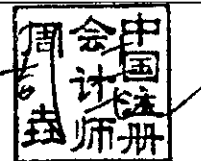 中国注册
会计师
周